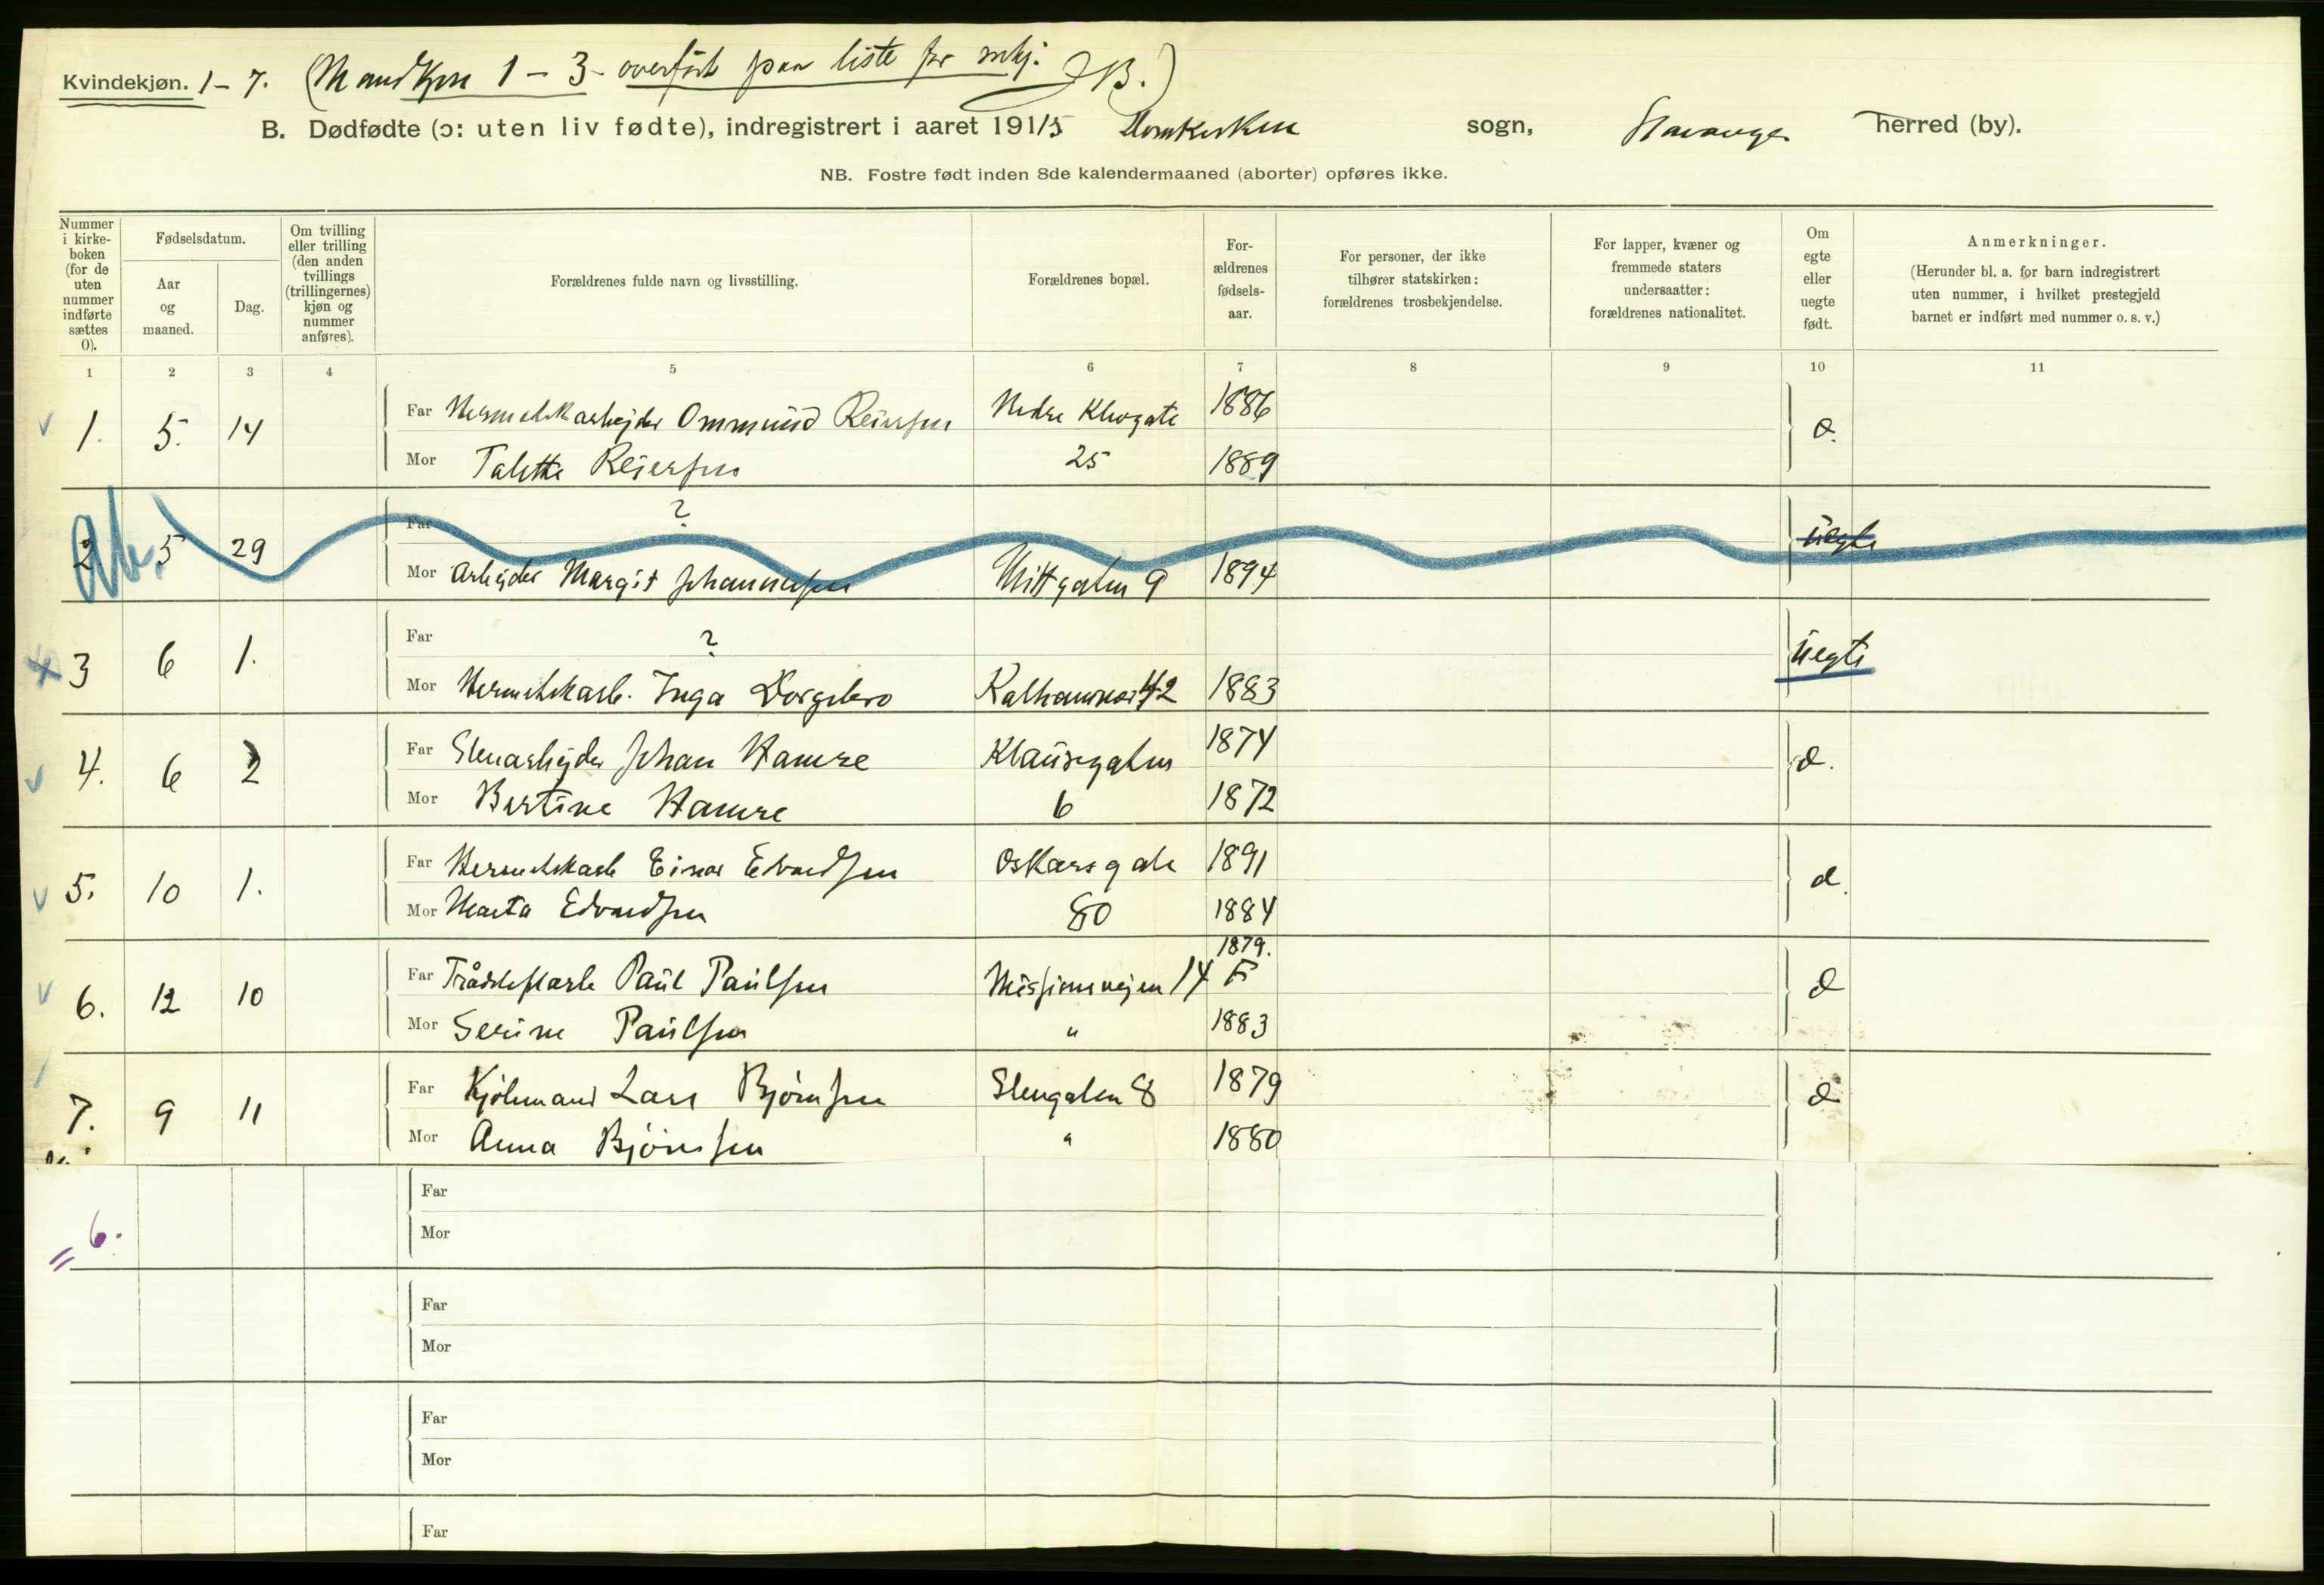 Kvindekjøn. 1-7. (Mandkjøn 1 - 3 - overført paa liste for mkj. JB.)
B. Dødfødte (ɔ: uten liv fødte), indregistrert i aaret 1915 Domkirken sogn, Stavanger herred (by).
NB. Fostre født inden 8de kalendermaaned (aborter) opføres ikke.
Nummer i kirkeboken (for de uten nummer indførte sættes 0).
Fødselsdatum.
Aar og maaned.
Dag.
Om tvilling eller trilling (den anden tvillings (trillingernes) kjøn og nummer anføres).
Forældrenes fulde navn og livsstilling.
Forældrenes bopæl.
Forældrenes fødselsaar.
For personer, der ikke tilhører statskirken: forældrenes trosbekjendelse.
For lapper, kvæner og fremmede staters undersaatter: forældrenes nationalitet.
Om egte eller uegte født.
Anmerkninger.
(Herunder bl. a. for barn indregistrert uten nummer, i hvilket prestegjeld barnet er indført med nummer o. s. v.)
1 2 3 4 5 6 7 8 9 10 11
1. 5. 14 Far Hermetikarbejder Ommund Reiersen Nedre Klevgate 1886
Mor Talette Reiersen 25 1889
2 5 29 Far ? uegte
Mor Arbejder Margit Johannesen Midtgaten 9 1894
3 6 1. Far ? uegte
Mor Hermetikarb. Inga 1883
4. 6 2 Far Stenarbejder Johan Hamre Klausegaten 1874
Mor Bertine Hamre 6 1872
5. 10 1. Far Hermetikarb Einar Edvardsen Oskarsgate 1891
Mor Marta Edvardsen 80 1884
6. 12 10 Far Paul Paulsen Missionsvejen 14 1879.
Mor Serine Paulsen " 1883
7. 9 11 Far Lars Bjørnsen Stengaten 8 1879
Mor Anna Bjørnsen " 1880
= 6.
Far
Mor
Far
Mor
Far
Mor
Far